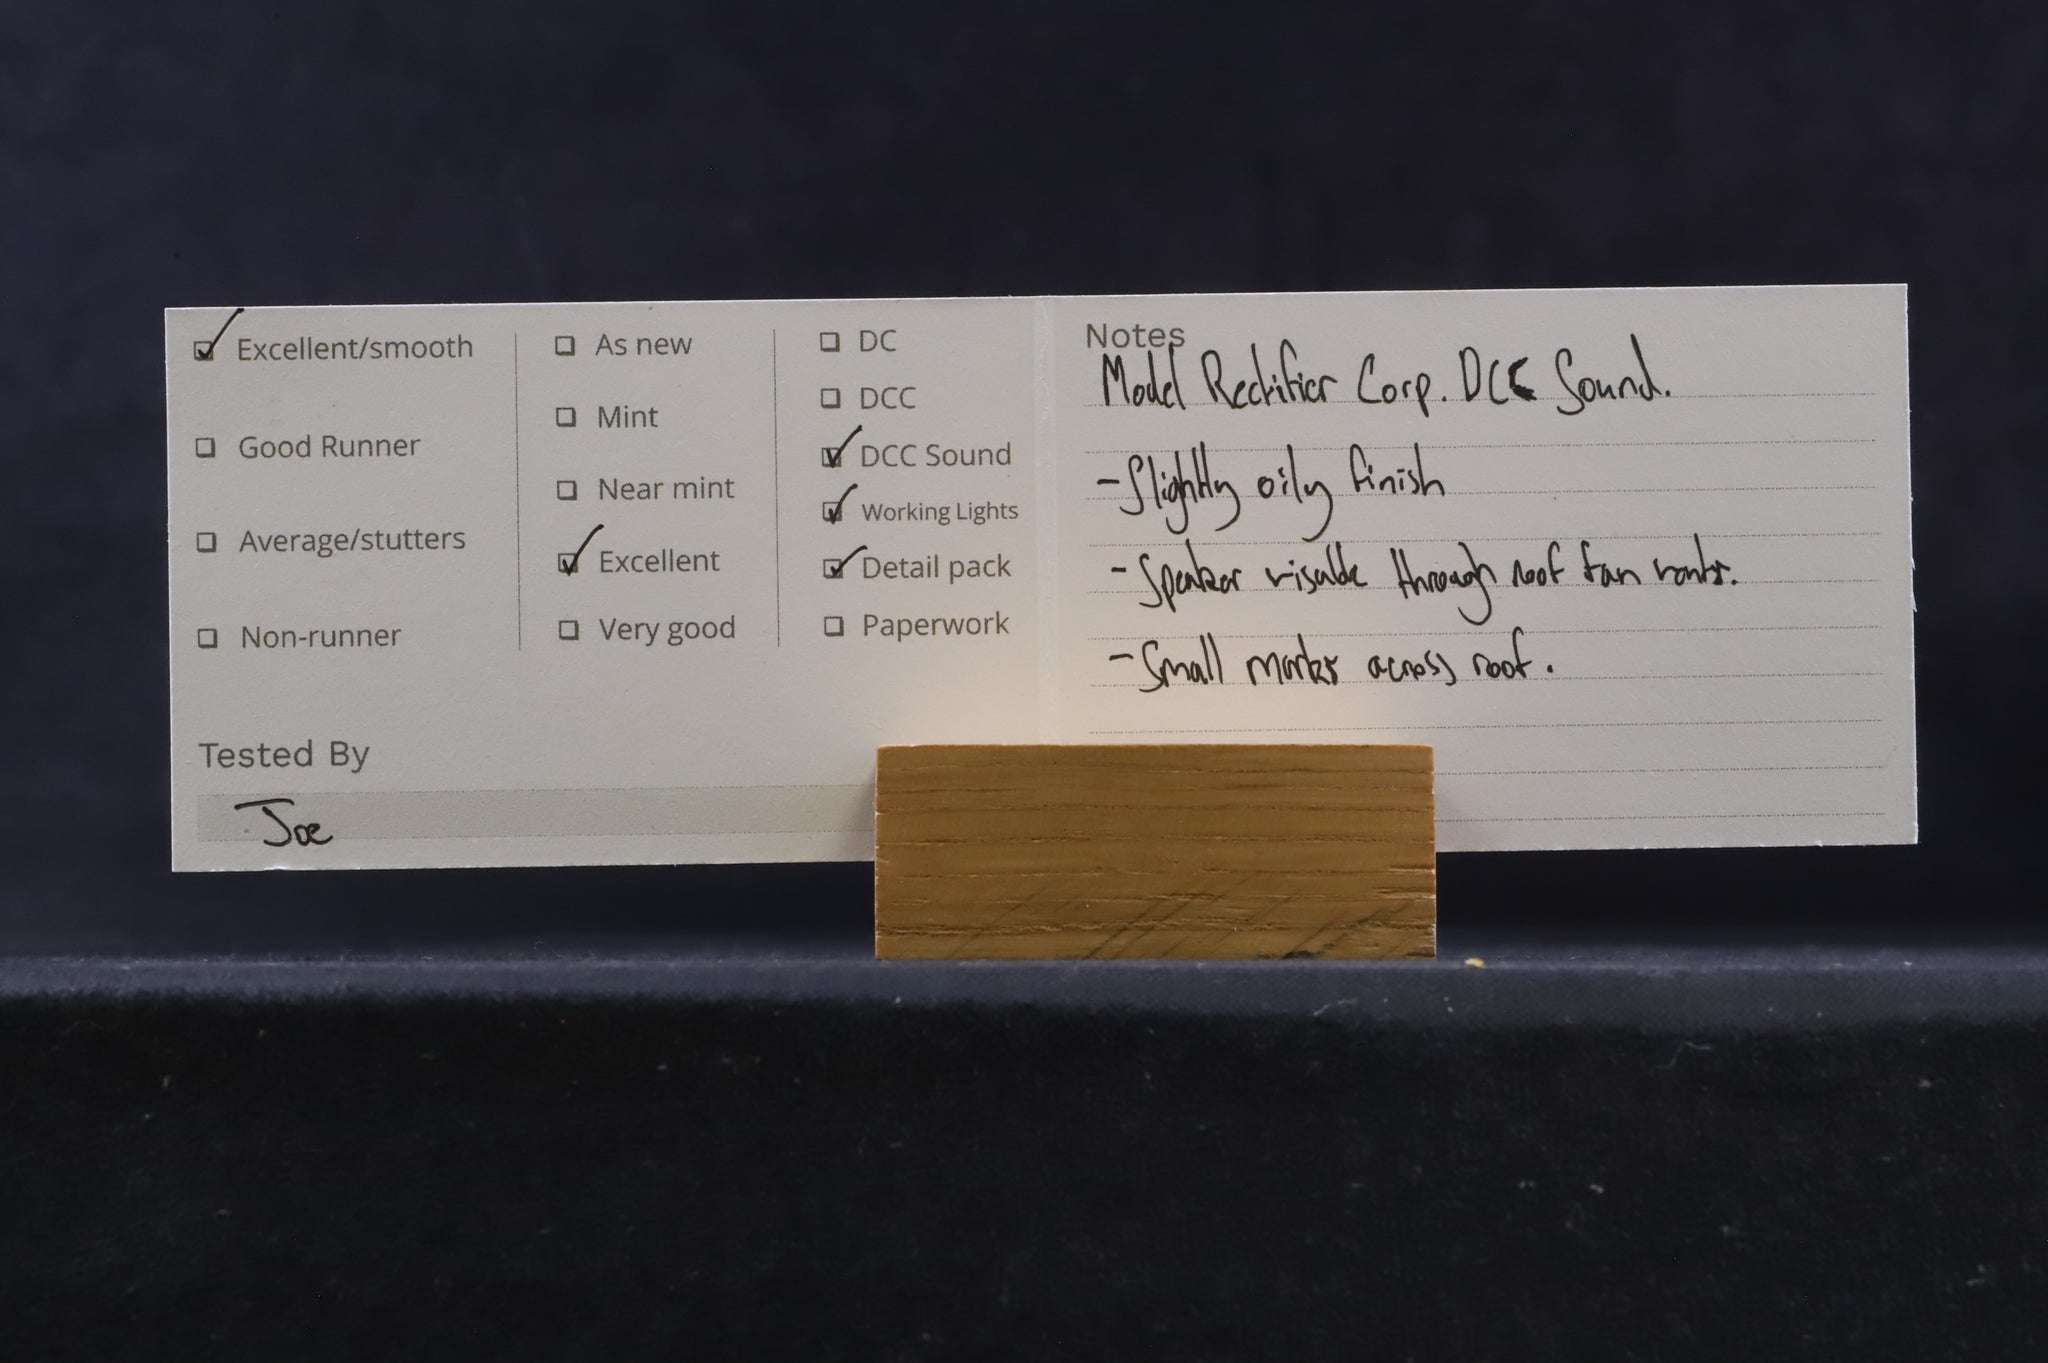 Excellent/smooth
Good Runner
Average/stutters
Non-runner
As new
Mint
Near mint
Excellent
Very good
DC
DCC
DCC Sound
Working Lights
Detail pack
Paperwork
Tested By
Joe
Notes
Model Rectifier Corp. DCC Sound.
- Slightly oily finish
- Speaker visable through roof fan vents.
- Small marks across roof.